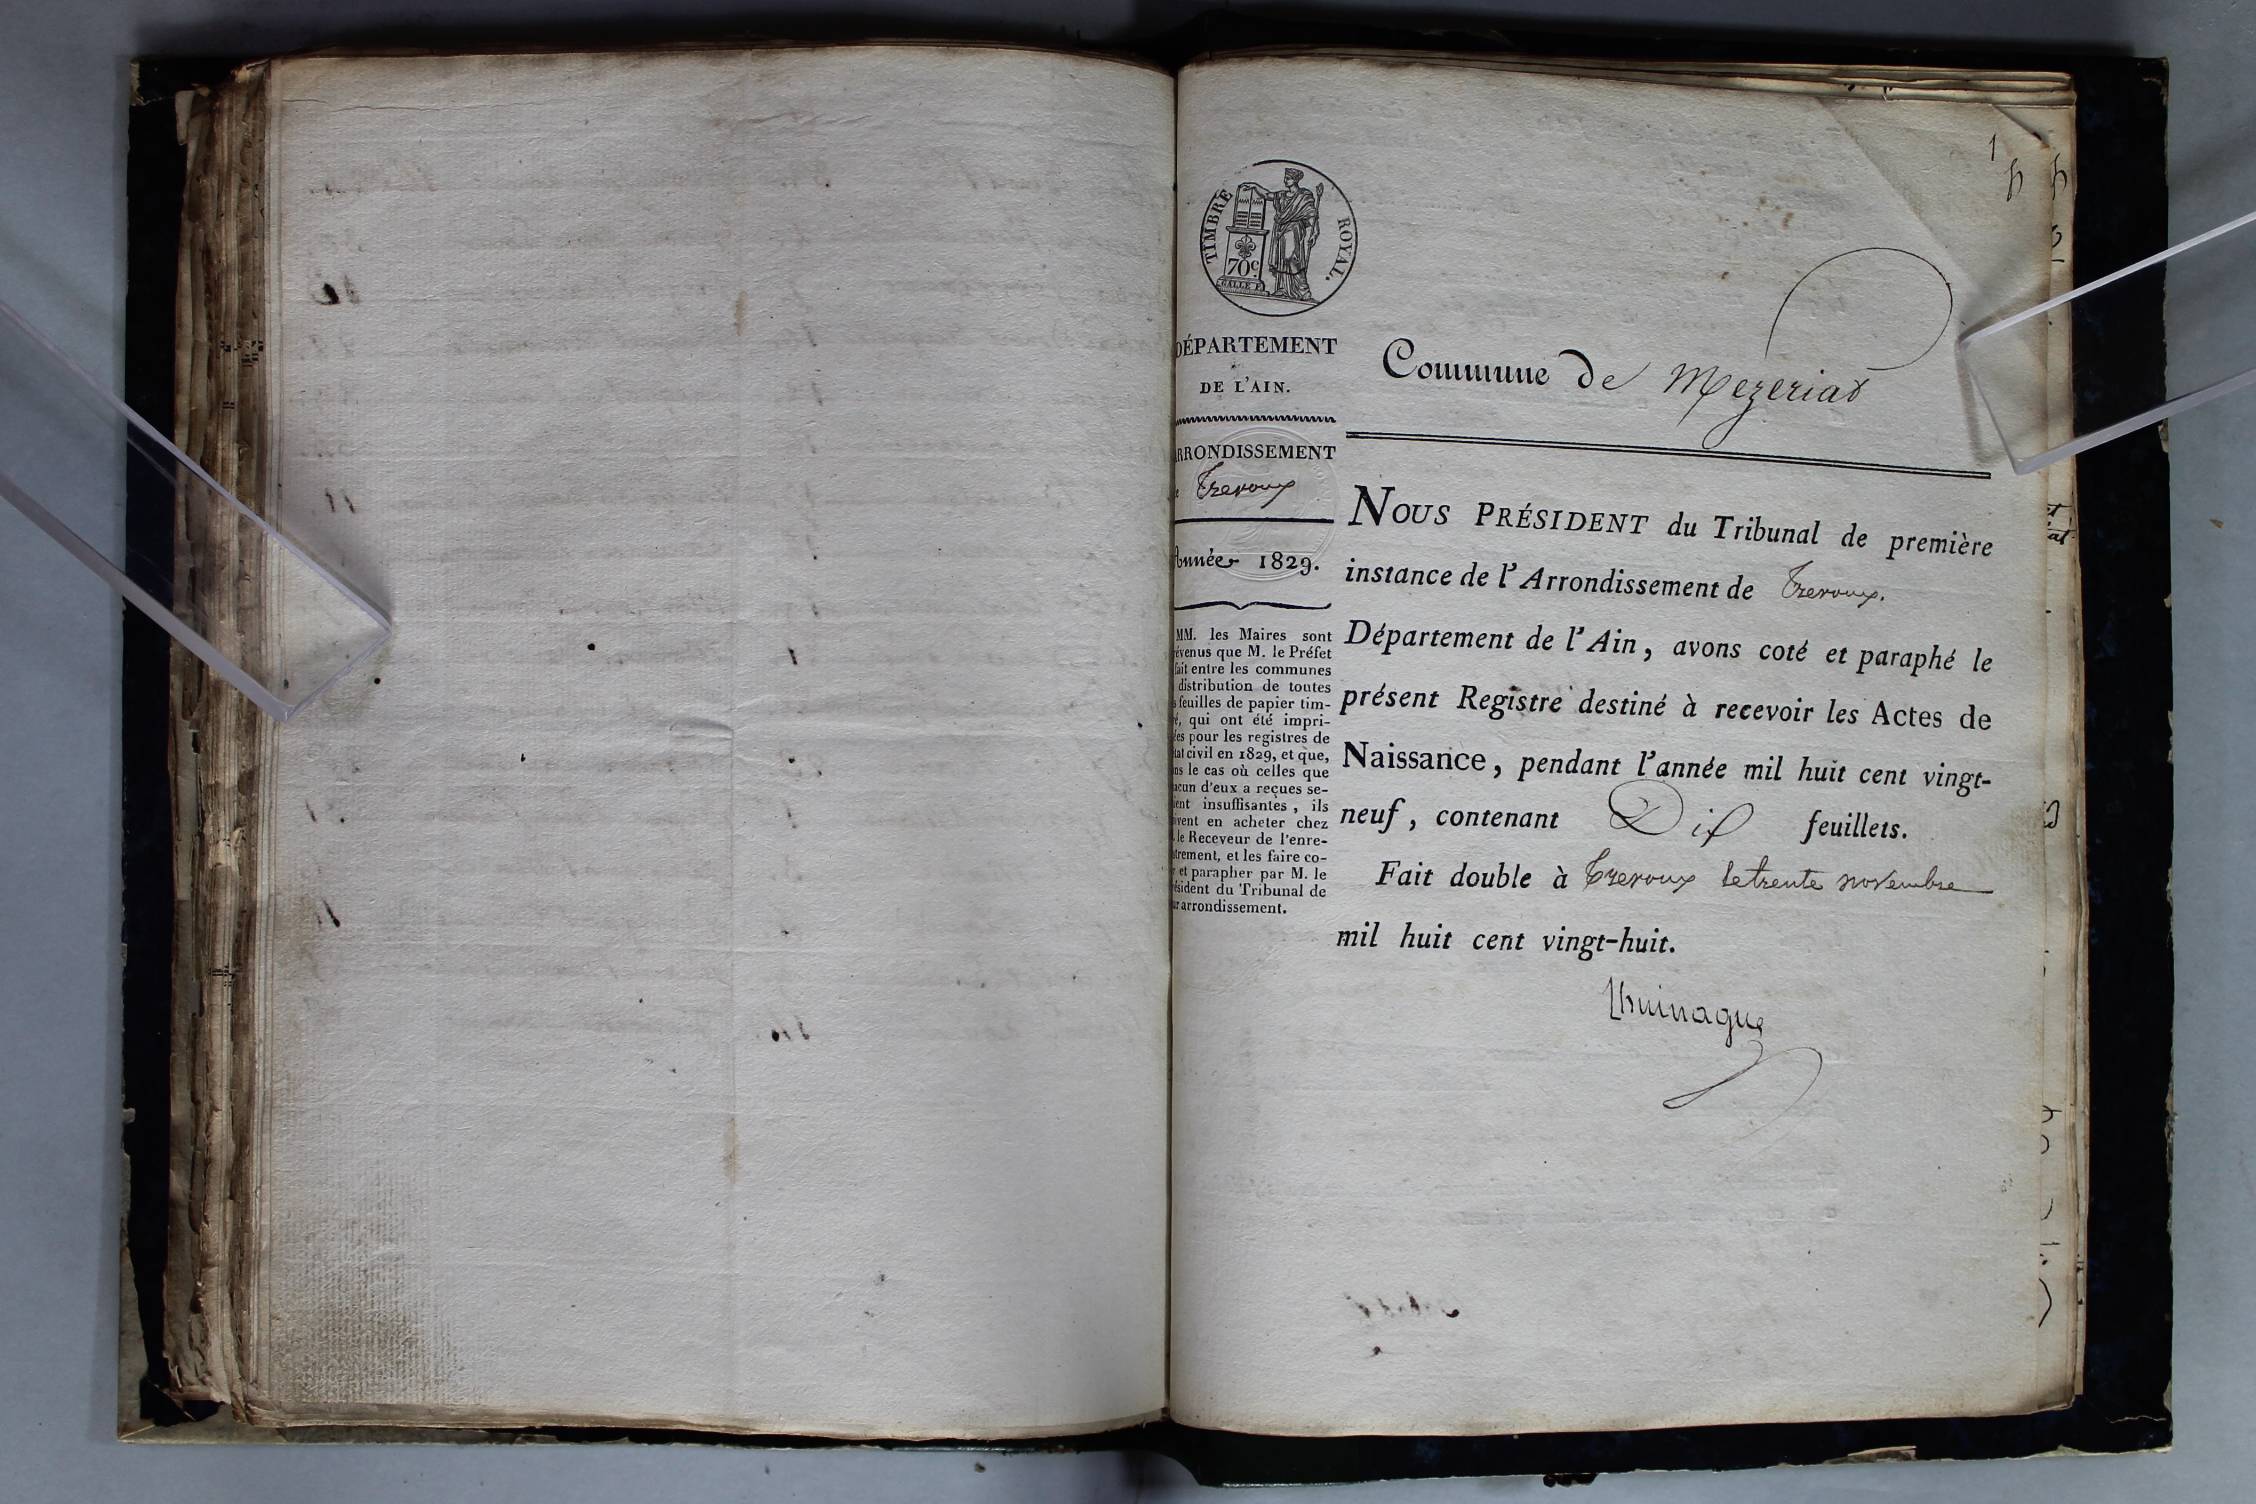 1
TIMBRE ROYAL.
70c.
GALLE F.
DÉPARTEMENT
DE L'AIN.
ARRONDISSEMENT
Trevoux
Année 1829.
MM. les Maires sont
révenus que M. le Préfet
fait entre les communes
distribution de toutes
s feuilles de papier tim-
é, qui ont été impri-
ées pour les registres de
tat civil en 1829, et que,
ns le cas où celles que
acun d'eux a reçues se-
ient insuffisantes, ils
ivent en acheter chez
. le Receveur de l'enre-
strement, et les faire co-
r et parapher par M. le
résident du Tribunal de
ur arrondissement.
Commune de Mezeriat
NOUS PRÉSIDENT du Tribunal de première
instance de l'Arrondissement de Trevoux.
Département de l'Ain, avons coté et paraphé le
présent Registre destiné à recevoir les Actes de
Naissance, pendant l'année mil huit cent vingt-
neuf, contenant Dix feuillets.
Fait double à Trevoux le trente novembre
mil huit cent vingt-huit.